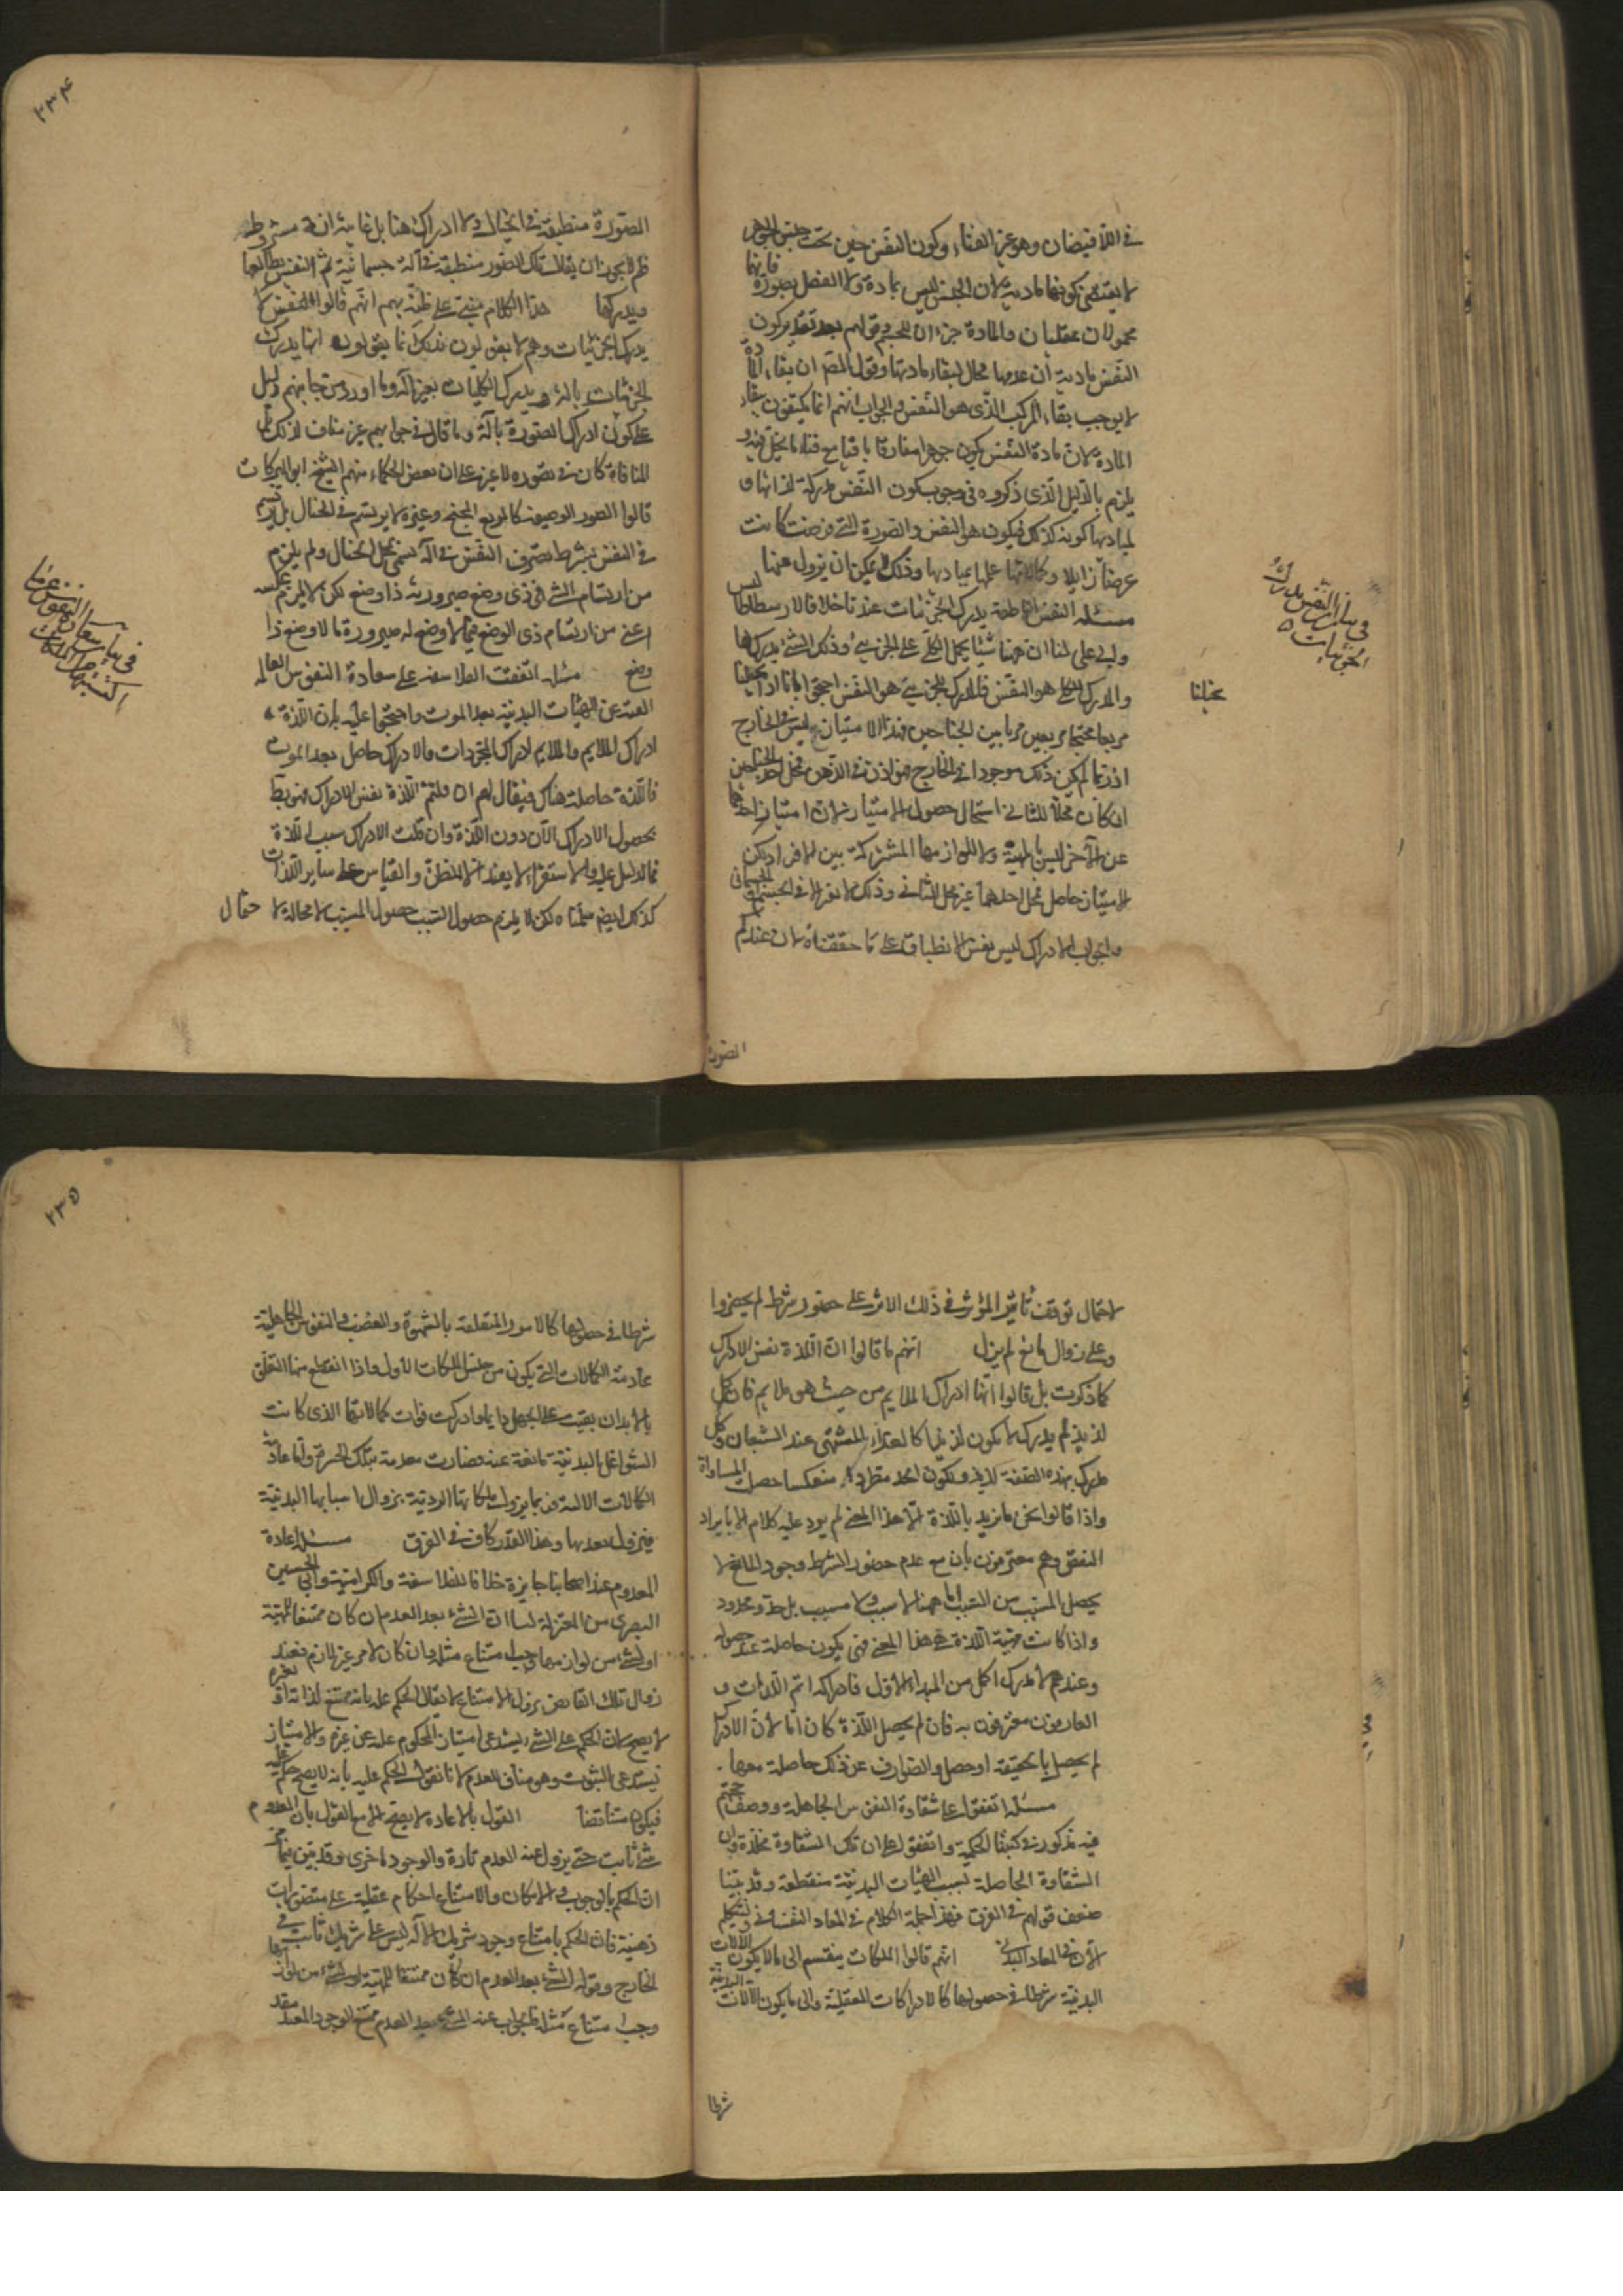 في اللافيضان وهو عين الفناء وكون النفس حين تحت جنس الجوهر
لا يقتضي كونها مادية لان الجنس ليس بمادة ولا الفصل بصورة فانهما
محمولان عقليان والمادة جزءان للجسم قولهم بعد تقدير كون
النفس مادية ان عدمها محال لبقاء مادتها وقول المص ان بقاء المادة
لا يوجب بقاء المركب الذي هو النفس والجواب انهم انما يكتفون ببقاء
المادة لان مادة النفس يكون جوهرا مفارقا باقيا مع فناء ما يحل فيه و
يلزم بالدليل الذي ذكروه في وجوب كون النفس مدركة لذاتها و
لمباديها كونه كذلك فيكون هو النفس والصورة التي فرضت كانت
عرضا زايلا وكمالاتها علمها بمباديها وذلك لا يمكن ان يزول عنها
مسئله النفس الناطقة يدرك الجزئيات عندنا خلافا لارسطاطاليس
وابي علي لنا ان ههنا شيئا يحمل الكلي على الجزيي وذلك الشيء يدركهما
والمدرك للكلي هو النفس فالمدرك للجزيي هو النفس احتجوا بانا اذا تخيلنا
تخيلنا
مربعا مجنحا بمربعين فرقنا بين الجناحين فهذا الامتياز ليس في الخارج
اذ ربما لم يكن ذلك موجودا في الخارج فهو اذن في الذهن فمحل احد الجناحين
ان كان محلا للثاني استحال حصول الامتياز لان امتياز احدهما
عن الآخر ليس بالمهية ولا لوازمها المشتركة بين الافراد لكن
الامتياز حاصل فمحل احدهما غير محل الثاني وذلك لا يعقل الا في الجسم الجسماني
والجواب الادراك ليس نفس الانطباق على ما حققناه لان عندكم
في بيان ان النفس مدركة
الجزئيات
الصورة
٢٣۴
الصورة منطبقة في الخيال ولا ادراك هنا بل غايته انه مشروط به
فلم لا يجوز ان يقال تلك الصور منطبقة في آلة جسمانية ثم النفس يطالعها
ويدركها هذا الكلام مبني على ظنه بهم انهم قالوا النفس لا
يدرك الجزئيات وهم لا يقولون بذلك انما يقولون انها يدرك
الجزئيات بالة ويدرك الكليات بغير آلة وما اورد من جانبهم دليل
على كون ادراك الصورة بآلة وما قال في جوابهم غير مناف لذلك بل
المنافاة كان في تصوره لا غير على ان بعض الحكماء منهم الشيخ ابو البركات
قالوا الصور الوضعية كالمربع المجنح وغيره لا يرتسم في الخيال بل يرتسم
في النفس بشرط تصرف النفس في آلة تسمى بمحل الخيال ولم يلزم
من ارتسام الشيء في ذي وضع صيرورته ذا وضع لكن لا يلزم عكسه
اعني من ارتسام ذي الوضع فيما لا وضع له صيرورة ما لا وضع ذا
وضع مسئله اتفقت الفلاسفة على سعادة النفوس العالمة
النقية عن الهيئات البدنية بعد الموت واحتجوا عليه بان اللذة
ادراك الملايم والملايم ادراك المجردات والادراك حاصل بعد الموت
فاللذة حاصلة هناك فيقال لهم ان قلتم اللذة نفس الادراك فهو بط
بحصول الادراك الآن دون اللذة وان قلت الادراك سبب اللذة
فما الدليل عليه والاستقراء لا يفيد الا الظن والقياس على ساير اللذات
كذلك ايضا سلمناه لكن لا يلزم حصول السبب حصول المسبب لا محالة لاحتمال
في بيان سعادة النفوس
٢٣٥
لاحتمال توقف تاثير المؤثر في ذلك الاثر على حضور شرط لم يحضروا
وعلى زوال مانع لم يزل انهم ما قالوا ان اللذة نفس الادراك
كما ذكرت بل قالوا انها ادراك الملايم من حيث هو ملايم فان كل
لذيذ لم يدرك لا يكون لذيذا كالغذاء المشتهى عند الشبعان وكل
مدرك بهذه الصفة لذيذ ويكون الحد مطردا منعكسا حصلت المساواة
واذا قالوا نحن ما نريد باللذة الا هذا المعنى لم يرد عليه كلام الا بايراد
النقض وهم معترفون بان مع عدم حضور الشرط وجود المانع لا
يحصل المسبب من السبب اما ههنا لا سبب ولا مسبب بل حد ومحدود
واذا كانت مهية اللذة هي هذا المعنى فهي يكون حاصلة عند حصوله
وعندهم لا مدرك اكمل من المبداء الاول فادراكه اتم اللذات و
العارفون معترفون به فان لم يحصل اللذة كان اما لان الادراك
لم يحصل بالحقيقة او حصل والصوارف عن ذلك حاصلة معها
مسئله اتفقوا على شقاوة النفوس الجاهلة ووصف حجتهم
فيه مذكور في كتبنا الحكمية واتفقوا على ان تلك الشقاوة مخلدة وان
الشقاوة الحاصلة بسبب الهيئات البدنية منقطعة وقد بينا
ضعف قولهم في الفرق فهذا جملة الكلام في المعاد النفساني ولنتكلم
الآن في المعاد البدني انهم قالوا الملكات ينقسم الى ما لا يكون الآلات
البدنية شرطا في حصولها كالادراكات العقلية والى ما يكون الآلات البدنية
شرطا
شرطا في حصولها كالامور المتعلقة بالشهوة والغضب والنفوس الجاهلية
عادمة الكمالات التي يكون من جنس الملكات الاولى واذا انقطع عنها التعلق
بالابدان بقيت على الجهل دايما وادركت فوات كمالاتها الذي كانت
الشواغل البدنية مانعة عنه فصارت معذبة بتلك الحسرة واما عادمة
الكمالات الاخيرة فربما يزول ملكاتها الردية بزوال اسبابها البدنية
فيزول تعذبها وهذا القدر كاف في الفرق مسئله اعادة
المعدوم عند اصحابنا جايزة خلافا للفلاسفة والكرامية وابي الحسين
البصري من المعتزلة لنا ان الشيء بعد العدم ان كان ممتنعا للمهية
او لشيء من لوازمها وجب امتناع مثله وان كان لامر غير لازم فعند
زوال ذلك العارض يزول الامتناع لا يقال الحكم عليه بانه ممتنع لذاته او لغيره
لا يصح لان الحكم على الشيء يستدعي امتياز المحكوم عليه عن غيره والامتياز
يستدعي الثبوت وهو مناف للعدم لانا نقول الحكم عليه بانه لا يصح حكم عليه
فيكون متناقضا القول بالاعادة لا يصح الا مع القول بان المعدوم
شيء ثابت حتى يزول عنه العدم تارة والوجود اخرى وقد بين فيما مر
ان الحكم بالوجوب والامكان والامتناع احكام عقلية على متصورات
ذهنية فان الحكم بامتناع وجود شريك الاله ليس على شريك ثابت في
الخارج وقوله الشيء بعد العدم ان كان ممتنعا للمهية او لشيء من لوازمها
وجب امتناع مثله فالجواب عنه الشيء بعد العدم ممتنع الوجود المقيد